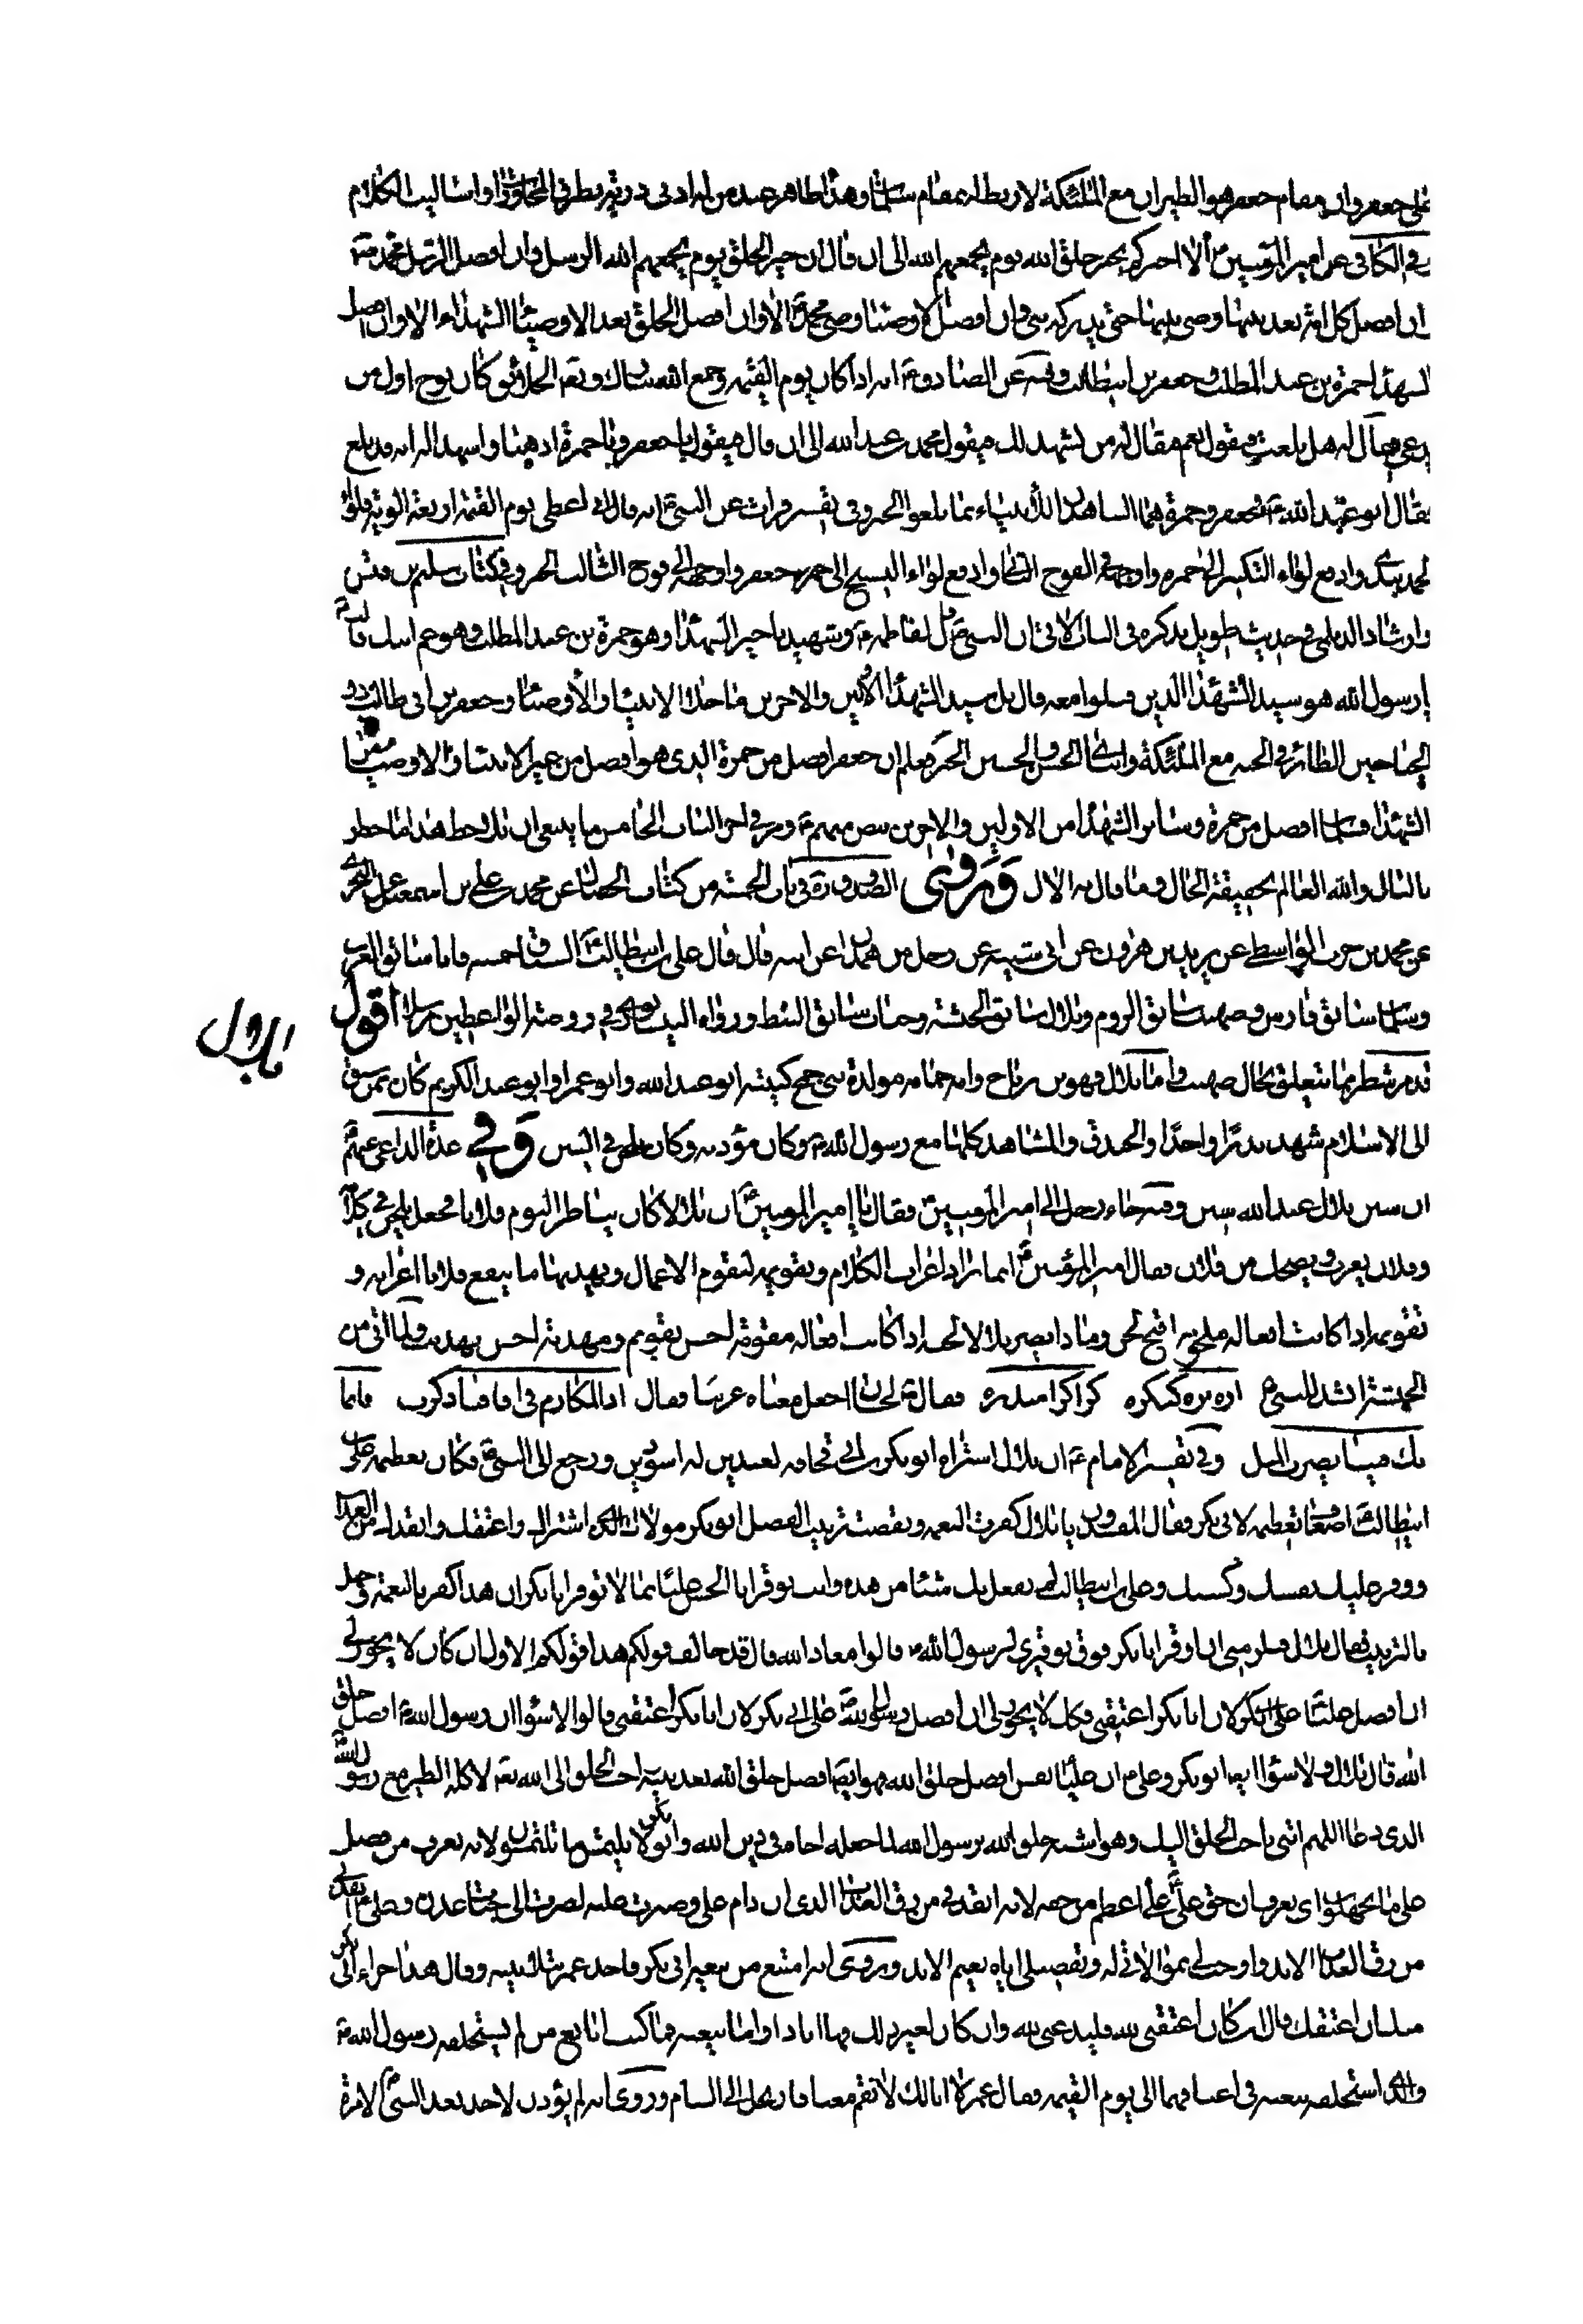 على جعفر وان مقام جعفر هو الطيران مع الملئكة لا ربط له بمقام سلمان وهذا ظاهر عند من له ادنى دربة ونظر في المحاورات واساليب الكلام
في الكافي عن امير المؤمنين ع الا اخبركم بخير خلق الله يوم يجمعهم الله الى ان قال ان خير الخلق يوم يجمعهم الله الرسل وان افضل الرسل محمد ص
ان افضل كل امة بعد نبيها وصي نبيها حتى يدركه نبي وان افضل الاوصياء وصي محمد ص الا وان افضل الخلق بعد الاوصياء الشهداء الا وان افضل
الشهداء حمزة بن عبد المطلب وجعفر بن ابيطالب وفيه عن الصادق ع انه اذا كان يوم القيمة وجمع الله تبارك وتعالى الخلائق كان نوح اول من
يدعى فيقال له هل بلغت فيقول نعم فيقال له من يشهد لك فيقول محمد بن عبد الله الى ان قال فيقول يا جعفر ويا حمزة اذهبا واشهدا له انه قد بلغ
فقال ابو عبد الله ع فجعفر وحمزة هما الشاهدان للانبياء بما بلغوا الخبر وفي تفسير فرات عن النبي ص انه قال اني اعطى يوم القيمة اربعة الوية فلواء
الحمد بيدي وادفع لواء التكبير الى حمزة واوجهه في الفوج الثاني وادفع لواء التسبيح الى جعفر واوجهه في الفوج الثالث الخبر وفي كتاب سليم بن قيس
وارشاد الديلمي في حديث طويل يذكره في الباب الاتي ان النبي ص قال لفاطمة ع وشهيدنا خير الشهداء وهو حمزة بن عبد المطلب وهو عم ابيك قالت
يا رسول الله هو سيد الشهداء الذين قتلوا معه قال بل سيد الشهداء الاولين والاخرين ما خلا الانبياء والاوصياء وجعفر بن ابي طالب ذو
الجناحين الطائر في الجنة مع الملئكة وابناك الحسن والحسين الخبر فعلم ان جعفر افضل من حمزة الذي هو افضل من غير الانبياء والاوصياء من
الشهداء فسلمان افضل من حمزة وسائر الشهداء من الاولين والاخرين بنص منهم ع ومر في اخر الباب الخامس ما ينبغي ان يلاحظ هذا ما خطر
بالبال والله العالم بحقيقة الحال وما قال به الال وروى الصدوق ره في باب الخمسة من كتاب الخصال عن محمد بن علي بن اسمعيل
عن محمد بن حرب الواسطي عن يزيد بن هرون عن ابي شيبة عن رجل من همدان عن ابيه قال قال علي بن ابيطالب ع السباق خمسة فانا سابق العرب
وسلمان سابق فارس وصهيب سابق الروم وبلال سابق الحبشة وخباب سابق النبط ورواه النيسابوري في روضة الواعظين مرسلا اقول
قد مر شطر مما يتعلق بحال صهيب واما بلال فهو بن رباح وامه حمامة مولدة بني جمح كنيته ابو عبد الله وابو عمرو وابو عبد الكريم كان ممن سبق
الى الاسلام شهد بدرا واحدا والخندق والمشاهد كلها مع رسول الله ص وكان مؤذنه وكان يلحن في الشين وفي عدة الداعي عنهم ع
ان سين بلال عند الله شين وفيه جاء رجل الى امير المؤمنين ع فقال يا امير المؤمنين ع ان بلالا كان يناظر اليوم فلانا فجعل يلحن في كلامه
وفلان يعرب ويضحك من فلان فقال امير المؤمنين ع انما يراد اعراب الكلام وتقويمه لتقويم الاعمال وتهذيبها ما ينفع فلانا اعرابه و
تقويمه اذا كانت افعاله ملحونة اقبح لحن وماذا يضر بلالا لحنه اذا كانت افعاله مقومة احسن تقويم ومهذبة احسن تهذيب ولما اتى من
الحبشة انشد للنبي ص اره بره كنكره كراكرا مندره فقال ص لحسان اجعل معناه عربيا فقال اذا المكارم في افاقنا ذكرت فانما
بك فينا يضرب المثل وفي تفسير الامام ع ان بلالا اشتراه ابو بكر بن ابي قحافة بعبدين له اسودين ورجع الى النبي ص فكان تعظيمه علي بن
ابيطالب ع اضعاف تعظيمه لابي بكر فقال المفسدون يا بلال كفرت النعمة ونقصت ترتيب الفضل ابو بكر مولاك الذي اشتراك واعتقك وانقذك من العذاب
ووفر عليك نفسك وكسبك وعلي بن ابيطالب لم يفعل بك شيئا من هذه وانت توقر ابا الحسن عليا بما لا توقر ابا بكر ان هذا كفر بالنعمة وجهل
بالترتيب فقال بلال فيلزمني ان اوقر ابا بكر فوق توقيري لرسول الله ص قالوا معاذ الله قال قد خالف قولكم هذا قولكم الاول ان كان لا يجوز لي
ان افضل عليا على ابي بكر لان ابا بكر اعتقني فكذلك لا يجوز لي ان افضل رسول الله ص على ابي بكر لان ابا بكر اعتقني قالوا لا سواء ان رسول الله ص افضل خلق
الله قال بلال ولا سواء ايضا ابو بكر وعلي ع ان عليا نفس افضل خلق الله فهو ايضا افضل خلق الله بعد نبيه احب الخلق الى الله تعالى لاكله الطير مع رسول الله ص
الذي دعا اللهم ائتني باحب الخلق اليك وهو اشبه خلق الله برسول الله لما جعله اخاه في دين الله وابو بكر لا يلتمس ما تلتمسون لانه يعرف من فضل
علي ما تجهلون اي يعرف ان حق علي علي اعظم من حقه لانه انقذني من رق العذاب الذي ان دام علي وصبرت عليه لصرت الى جنات عدن وعلي ع انقذني
من رق العذاب الابد واوجب لي بموالاتي له وتفضيلي اياه نعيم الابد وروي انه امتنع من بيعة ابي بكر فاخذ عمر بتلابيبه وقال هذا جزاء ابي بكر
منك ان اعتقك قال ان كان اعتقني لله فليدعني لله وان كان لغير ذلك فها انا ذا واما بيعته فما كنت ابايع من لم يستخلفه رسول الله ص
والذي استخلفه بيعته في اعناقنا الى يوم القيمة فقال عمر لا ابا لك لا تقم معنا فارتحل الى الشام وروى انه لم يؤذن لاحد بعد النبي ص الا مرة